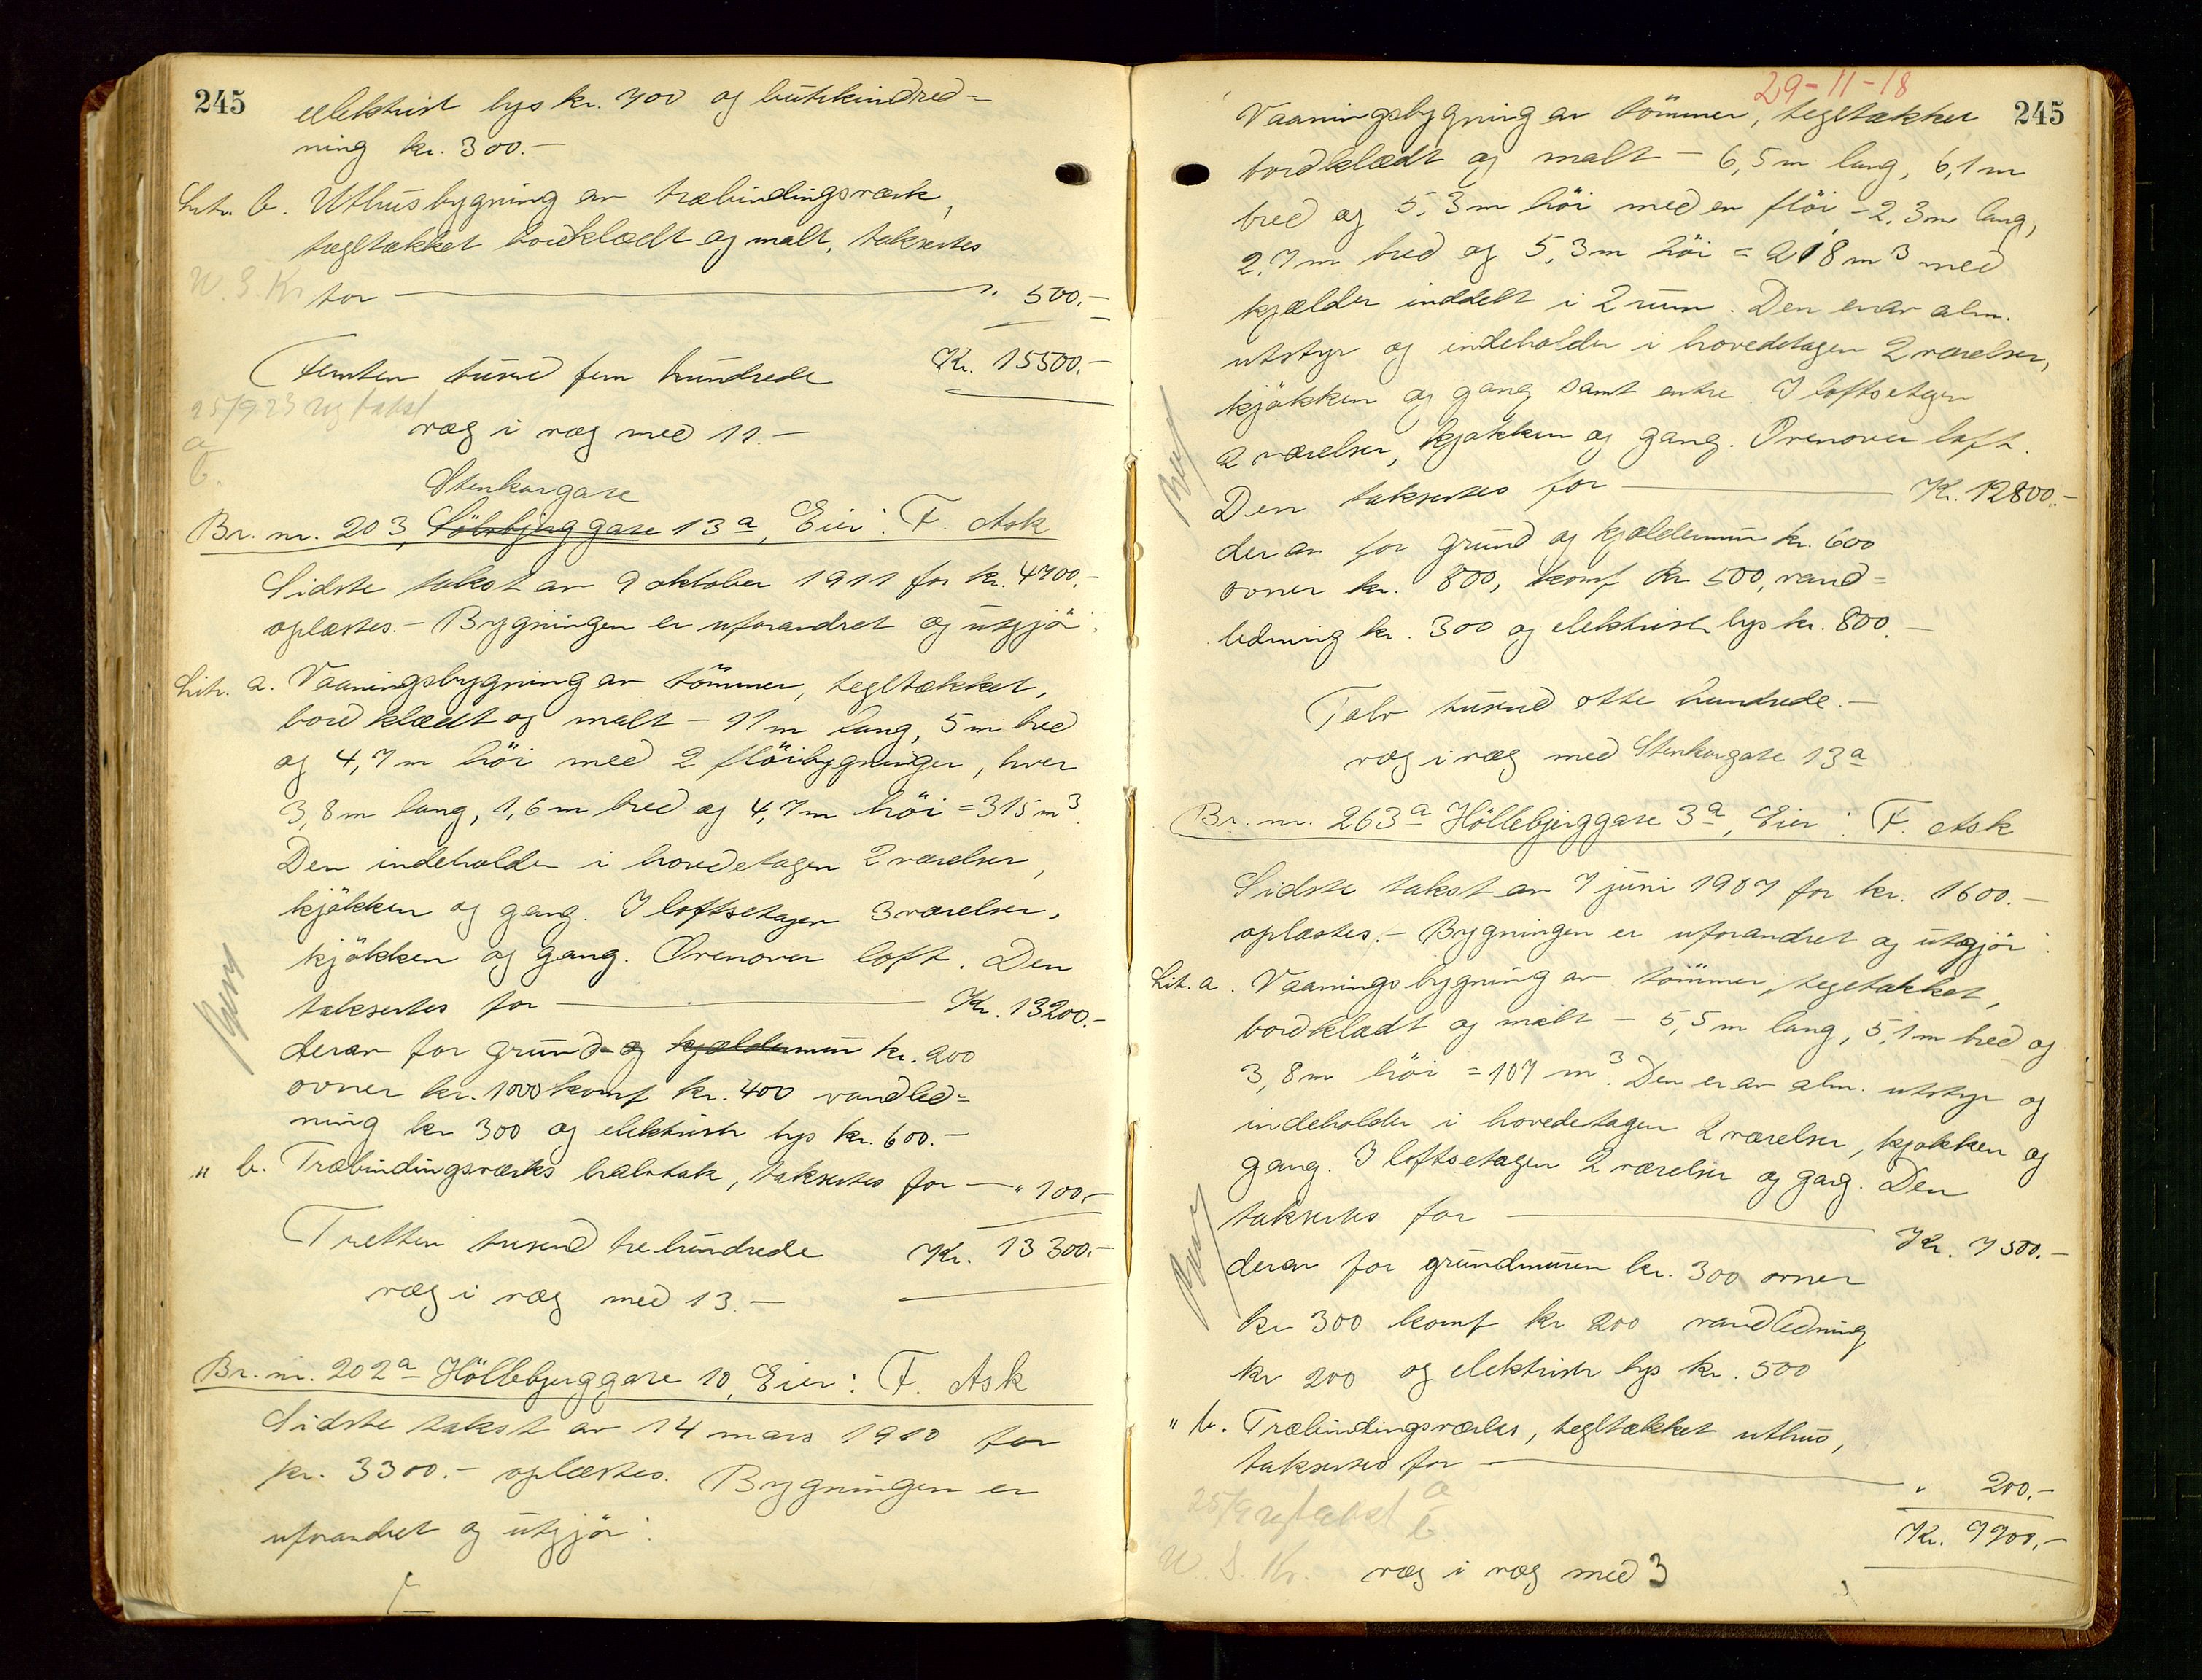 245
elektrist lys kr. 700 og butikindred=
ning kr. 300.-
Litr. b. Uthusbygning av træbindingsværk,
tegltækket bordklædt og malt, taksertes
W. S. Kr
for — " 500.-
Femten tusend fem hundrede Kr. 15500.-
25/9 23 ny takst
væg i væg med 11.-
a
b.
Stenkargate
Br. nr. 203, Sölvbjerggate 13a, Eier: F. Ask
Sidste takst av 9 oktober 1911 for kr. 4700.-
oplæstes.- Bygningen er uforandret og utgjör:
Litr. a. Vaaningsbygning av tömmer, tegltækket,
bordklædt og malt - 11 m lang, 5 m bred
og 4,7 m höi med 2 flöibygninger, hver
3,8 m lang, 1,6 m bred og 4,7 m höi = 315 m³.
Den indeholder i hovedetagen 2 værelser,
kjökken og gang. I loftsetagen 3 værelser,
kjökken og gang. Ovenover loft. Den
taksertes for — Kr. 13200.-
derav for grund og kjældermur kr. 200
ovner kr. 1000 komf kr. 400 vandled=
ning kr 300 og elektrisk lys kr. 600.-
" b. Træbindingsværks halvtak, taksertes for — " 100.-
Tretten tusend tre hundrede Kr. 13300.-
væg i væg med 13.-
Br. nr. 202a Höllebjerggate 10, Eier: F. Ask
Sidste takst av 14 mars 1910 for
kr. 3300.- oplæstes. Bygningen er
uforandret og utgjör:
29-11-18
245
Vaaningsbygning av tömmer, tegltækket
bordklædt og malt - 6,5 m lang, 6,1 m
bred og 5,3 m höi med en flöi - 2,3 m lang,
2,7 m bred og 5,3 m höi = 218 m³ med
kjælder inddelt i 2 rum. Den er av alm.
utstyr og indeholder i hovedetagen 2 værelser,
kjökken og gang samt entre. I loftsetagen
2 værelser, kjökken og gang. Ovenover loft.
Den taksertes for — Kr. 12800.-
derav for grund og kjældermur kr. 600
ovner kr. 800, komf kr 500, vand=
ledning kr. 300 og elektrisk lys kr. 800.-
Tolv tusend otte hundrede.-
væg i væg med Stenkargate 13a
Br. nr. 263a Höllebjerggate 3a, Eier: F. Ask
Sidste takst av 7 juni 1907 for kr. 1600.-
oplæstes.- Bygningen er uforandret og utgjör:
Lit. a. Vaaningsbygning av tömmer, tegltækket,
bordklædt og malt - 5,5 m lang, 5,1 m bred og
3,8 m höi = 107 m³. Den er av alm. utstyr og
indeholder i hovedetagen 2 værelser, kjökken og
gang. I loftsetagen 2 værelser og gang. Den
taksertes for — Kr. 7500.-
derav for grundmuren kr. 300 ovner
kr 300 komf kr 200 vandledning
kr 200 og elektrisk lys kr. 500
" b. Træbindingsværks, tegltækket uthus,
taksertes for — " 200.-
25/9 ny takst a
b
Kr. 7700.-
W. S. Kr. væg i væg med 3